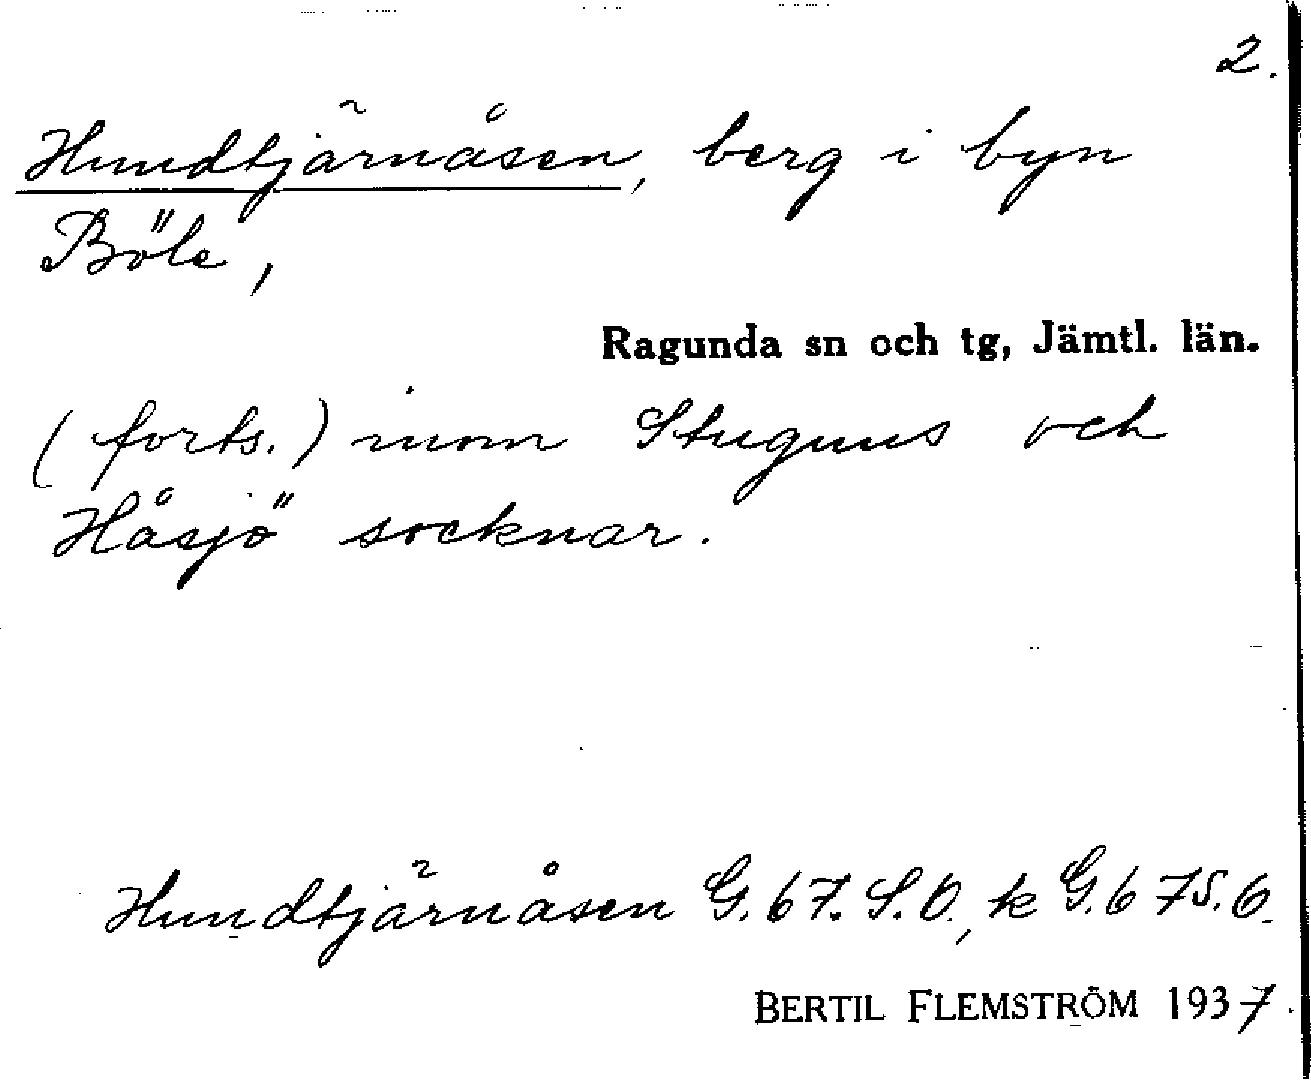 2.
Hundtjärnåsen, berg i byn
Böle,
Ragunda sn och tg, Jämtl. län.
(forts.) inom Stuguns och
Håsjö socknar.
Hundtjärnåsen G. 67. S.O., k G. 67 S.O.
BERTIL FLEMSTRÖM 1937.